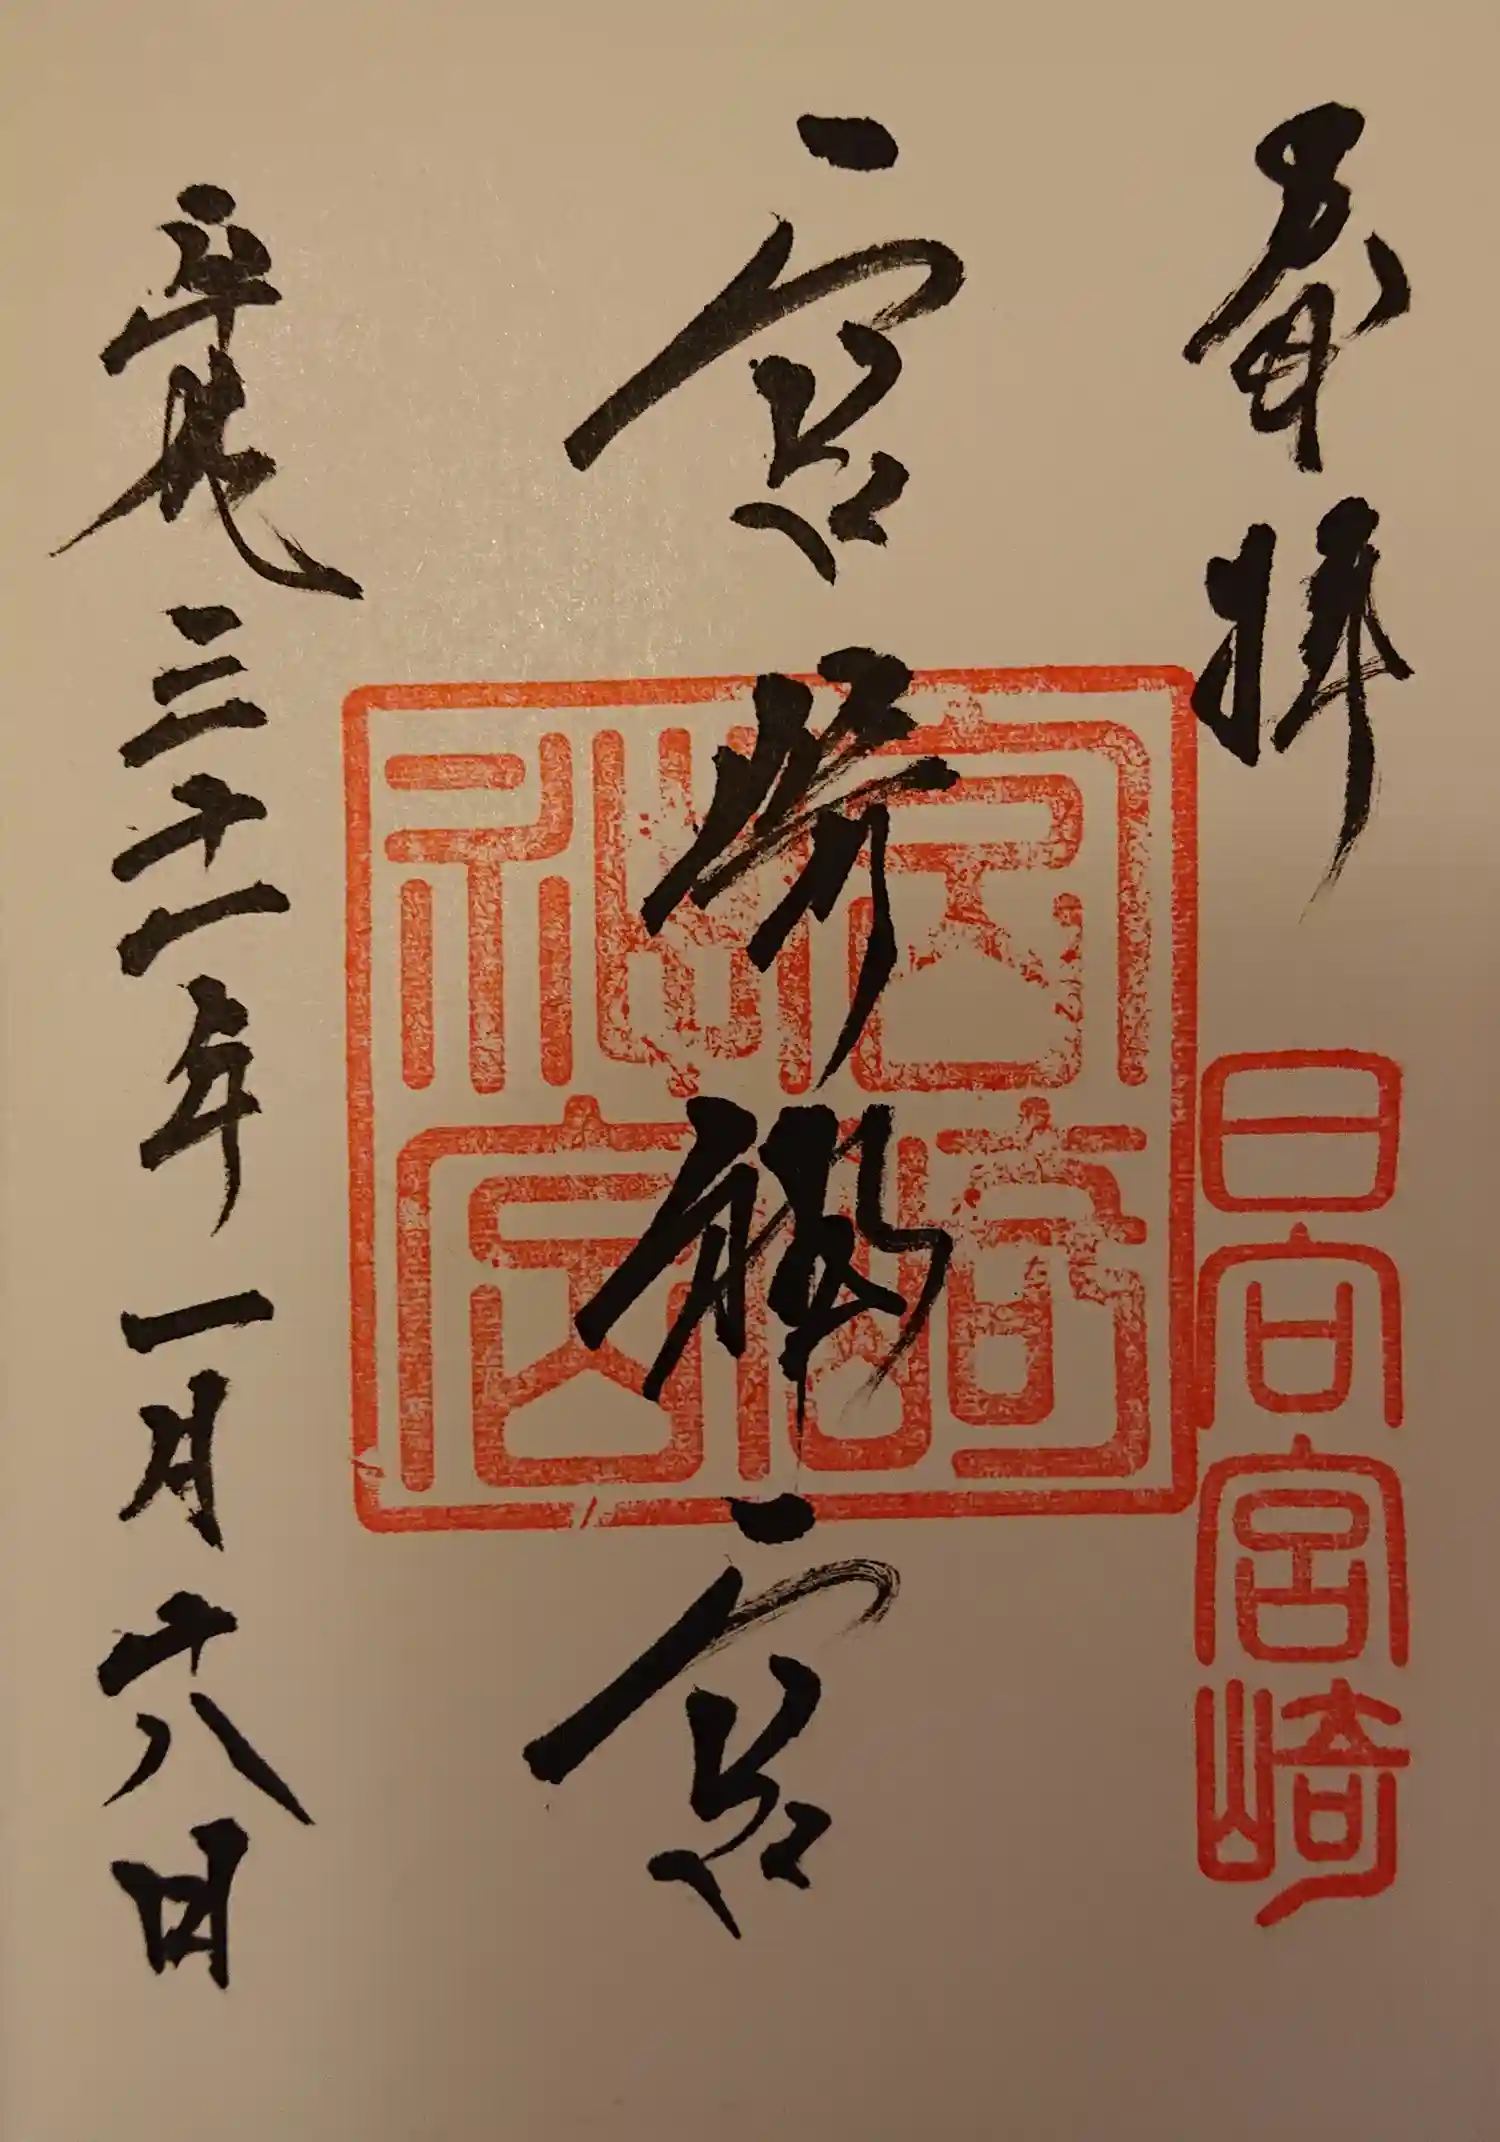 奉拝
日向宮崎
宮崎神宮
宮崎神宮
平成三十一年一月十八日